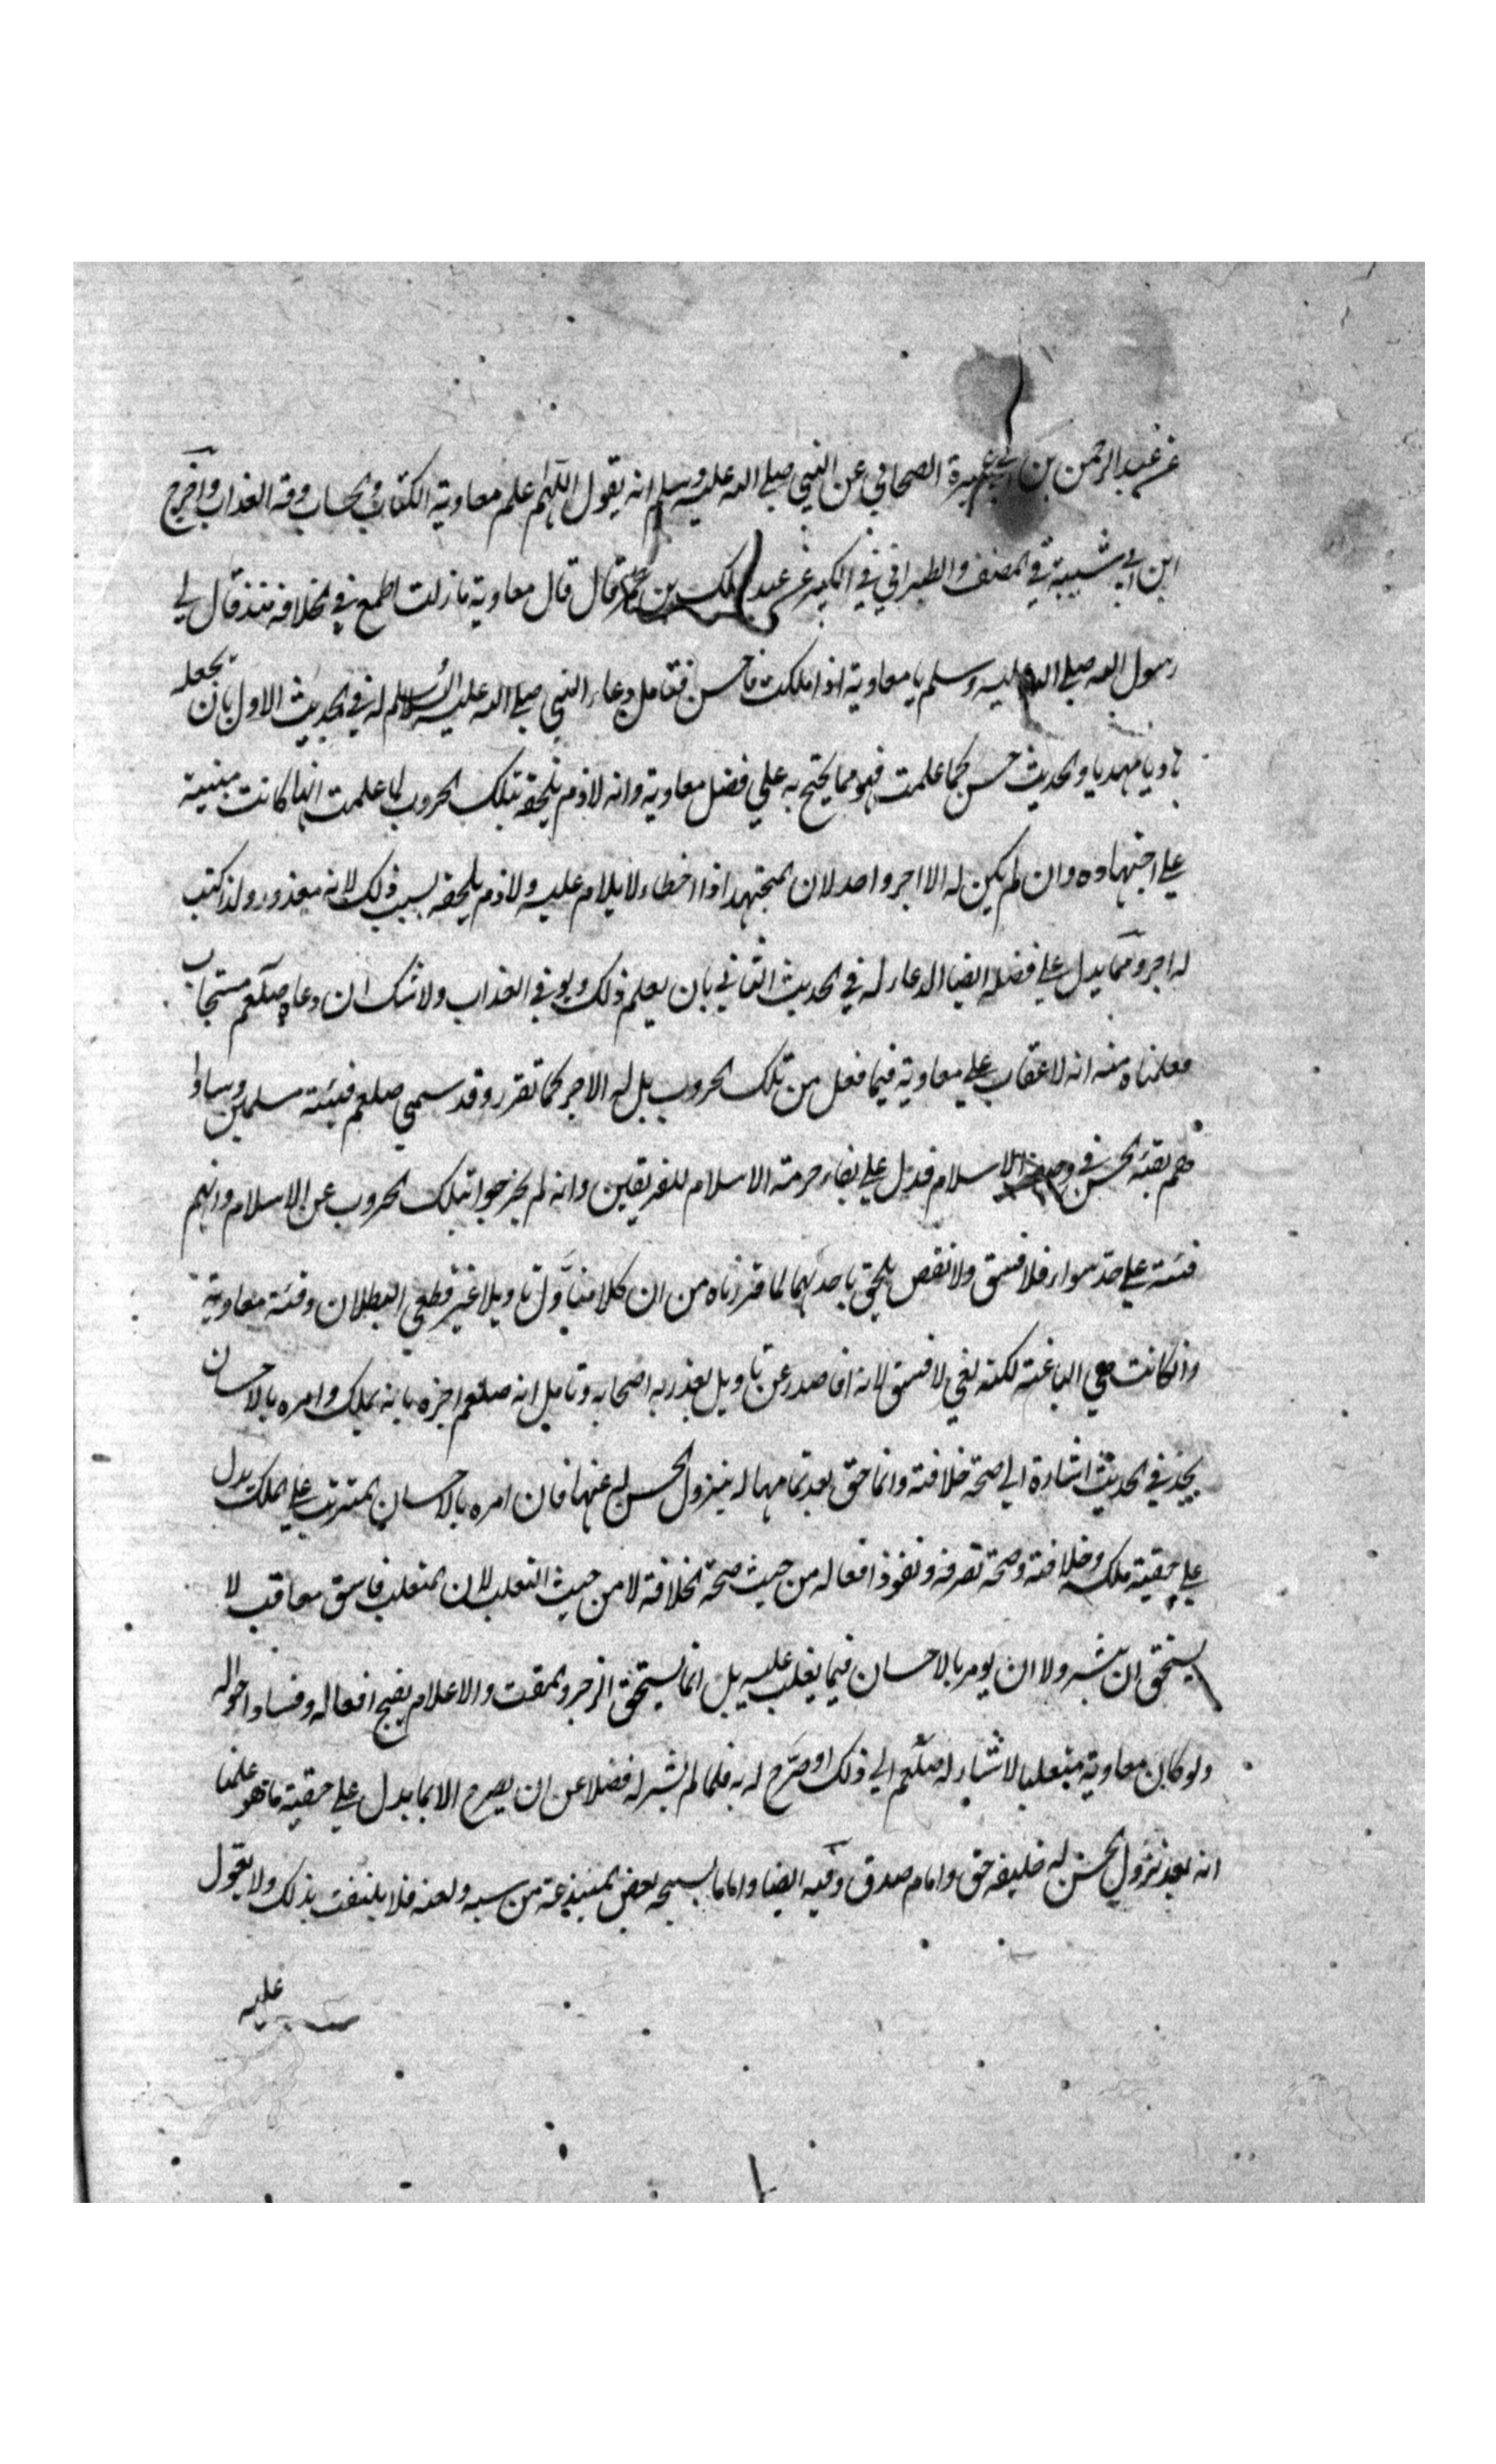 عن عبد الرحمن بن ابي عميرة الصحابي عن النبي صلى الله عليه وسلم انه يقول اللهم علم معاوية الكتاب والحساب وقه العذاب واخرج
ابن ابي شيبة في المصنف والطبراني في الكبير عن عبد الملك بن عمير قال قال معاوية ما زلت اطمع في الخلافة منذ قال لي
رسول الله صلى الله عليه وسلم يا معاوية اذا ملكت فاحسن فتامل دعاء النبي صلى الله عليه وسلم له في الحديث الاول بان يجعله
هاديا مهديا والحديث حسن كما علمت فهو مما يحتج به على فضل معاوية وانه لا ذم يلحقه بتلك الحروب لما علمت انها كانت مبنية
على اجتهاده وان لم يكن له الا اجر واحد لان المجتهد اذا اخطاء لا يلام عليه ولا ذم يلحقه بسبب ذلك لانه معذور ولذا كتب
له اجر ومما يدل على فضله ايضا الدعاء له في الحديث الثاني بان يعلم ذلك ويوقى العذاب ولا شك ان دعاءه صلعم مستجاب
فعلمناه منه انه لا عقاب على معاوية فيما فعل من تلك الحروب بل له الاجر كما تقرر وقد سمى صلعم فيئته مسلمين وساوا
هم بفئة الحسن في وصف الاسلام فدل على بقاء حرمة الاسلام للفريقين وانه لم يخرجوا بتلك الحروب عن الاسلام وانهم
فئة على حد سواء فلا فسق ولا نقص يلحق باحديهما لما قررناه من ان كلا متاول تاويلا غير قطعي البطلان وفئة معاوية
وان كانت هي الباغية لكنه بغي لا فسق لانه انما صدر عن تاويل يعذر به اصحابه وتامل انه صلعم اخبره بانه يملك وامره بالاحسان
يجد في الحديث اشارة الى صحة خلافته وانها حق بعد تمامها له بنزول الحسن له عنها فان امره بالاحسان المترتب على الملك يدل
على حقية ملكه وخلافته وصحة تصرفه ونفوذ افعاله من حيث صحة الخلافة لا من حيث التغلب لان المتغلب فاسق معاقب لا
يستحق ان يبشر ولا ان يومر بالاحسان فيما يغلب عليه بل انما يستحق الزجر والمقت والاعلام بقبيح افعاله وفساد احواله
ولو كان معاوية متغلبا لاشار له صلعم الى ذلك او صرح له به فلما لم يشر له فضلا عن ان يصرح الا بما يدل على حقية ما هو علمنا
انه بعد نزول الحسن له خليفة حق وامام صدق وفيه ايضا واما ما يسبحه بعض المبتدعة من سبه ولعنه فلا يلتفت بذلك ولا يعول
عليه